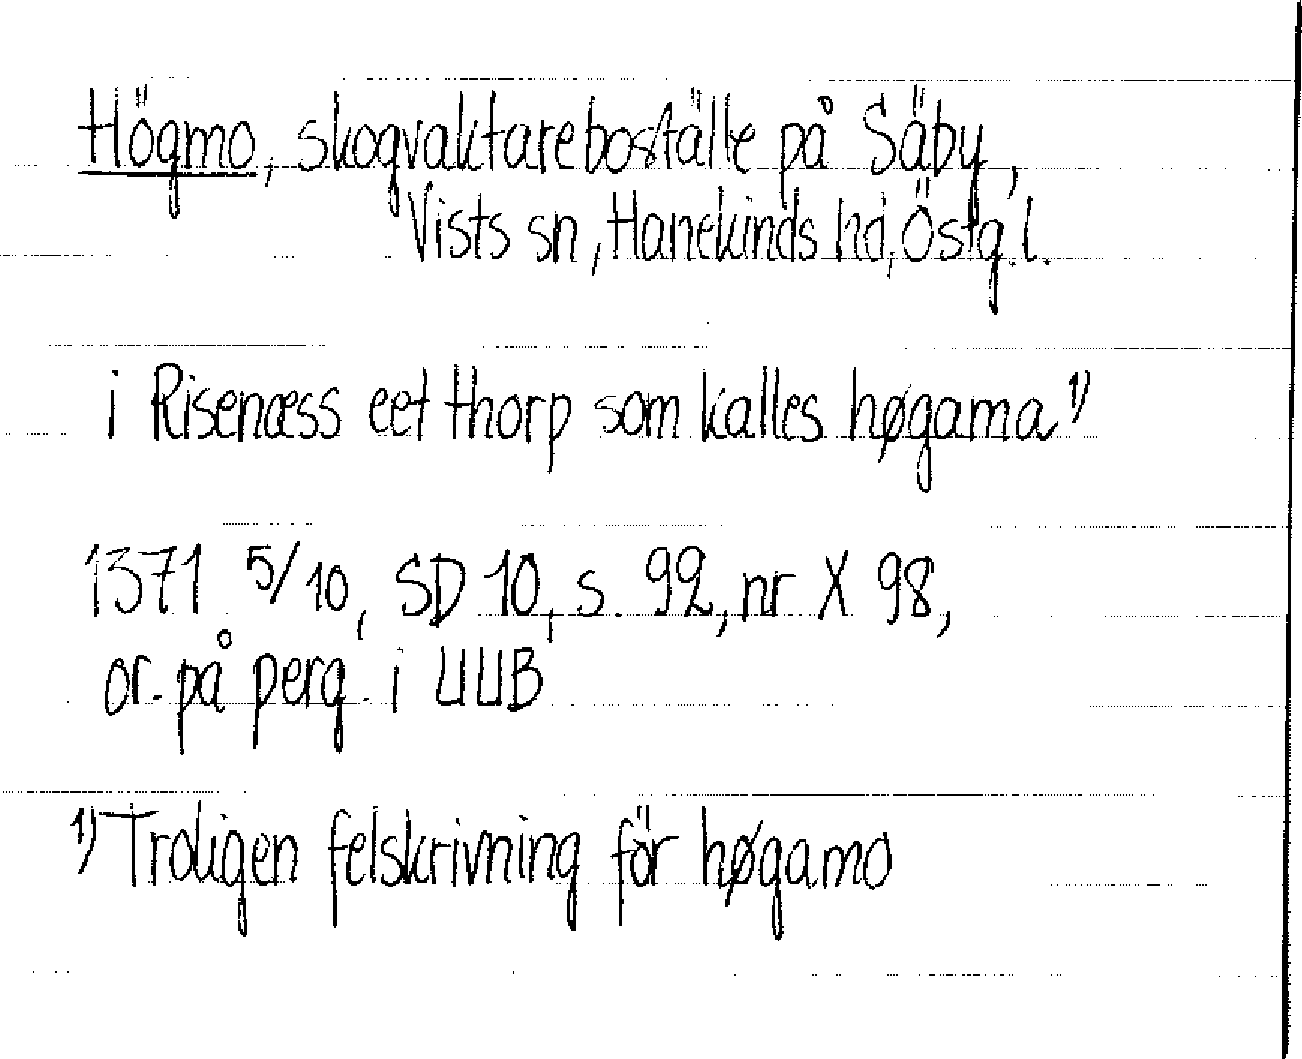 Högmo, skogvaktareboställe på Säby,
Vists sn, Hanekinds hd, Östg.l.
i Risenæss eet thorp som kalles høgama 1)
1371 5/10, SD 10, s. 92, nr X 98,
or. på perg. i UUB
1) Troligen felskrivning för høgamo